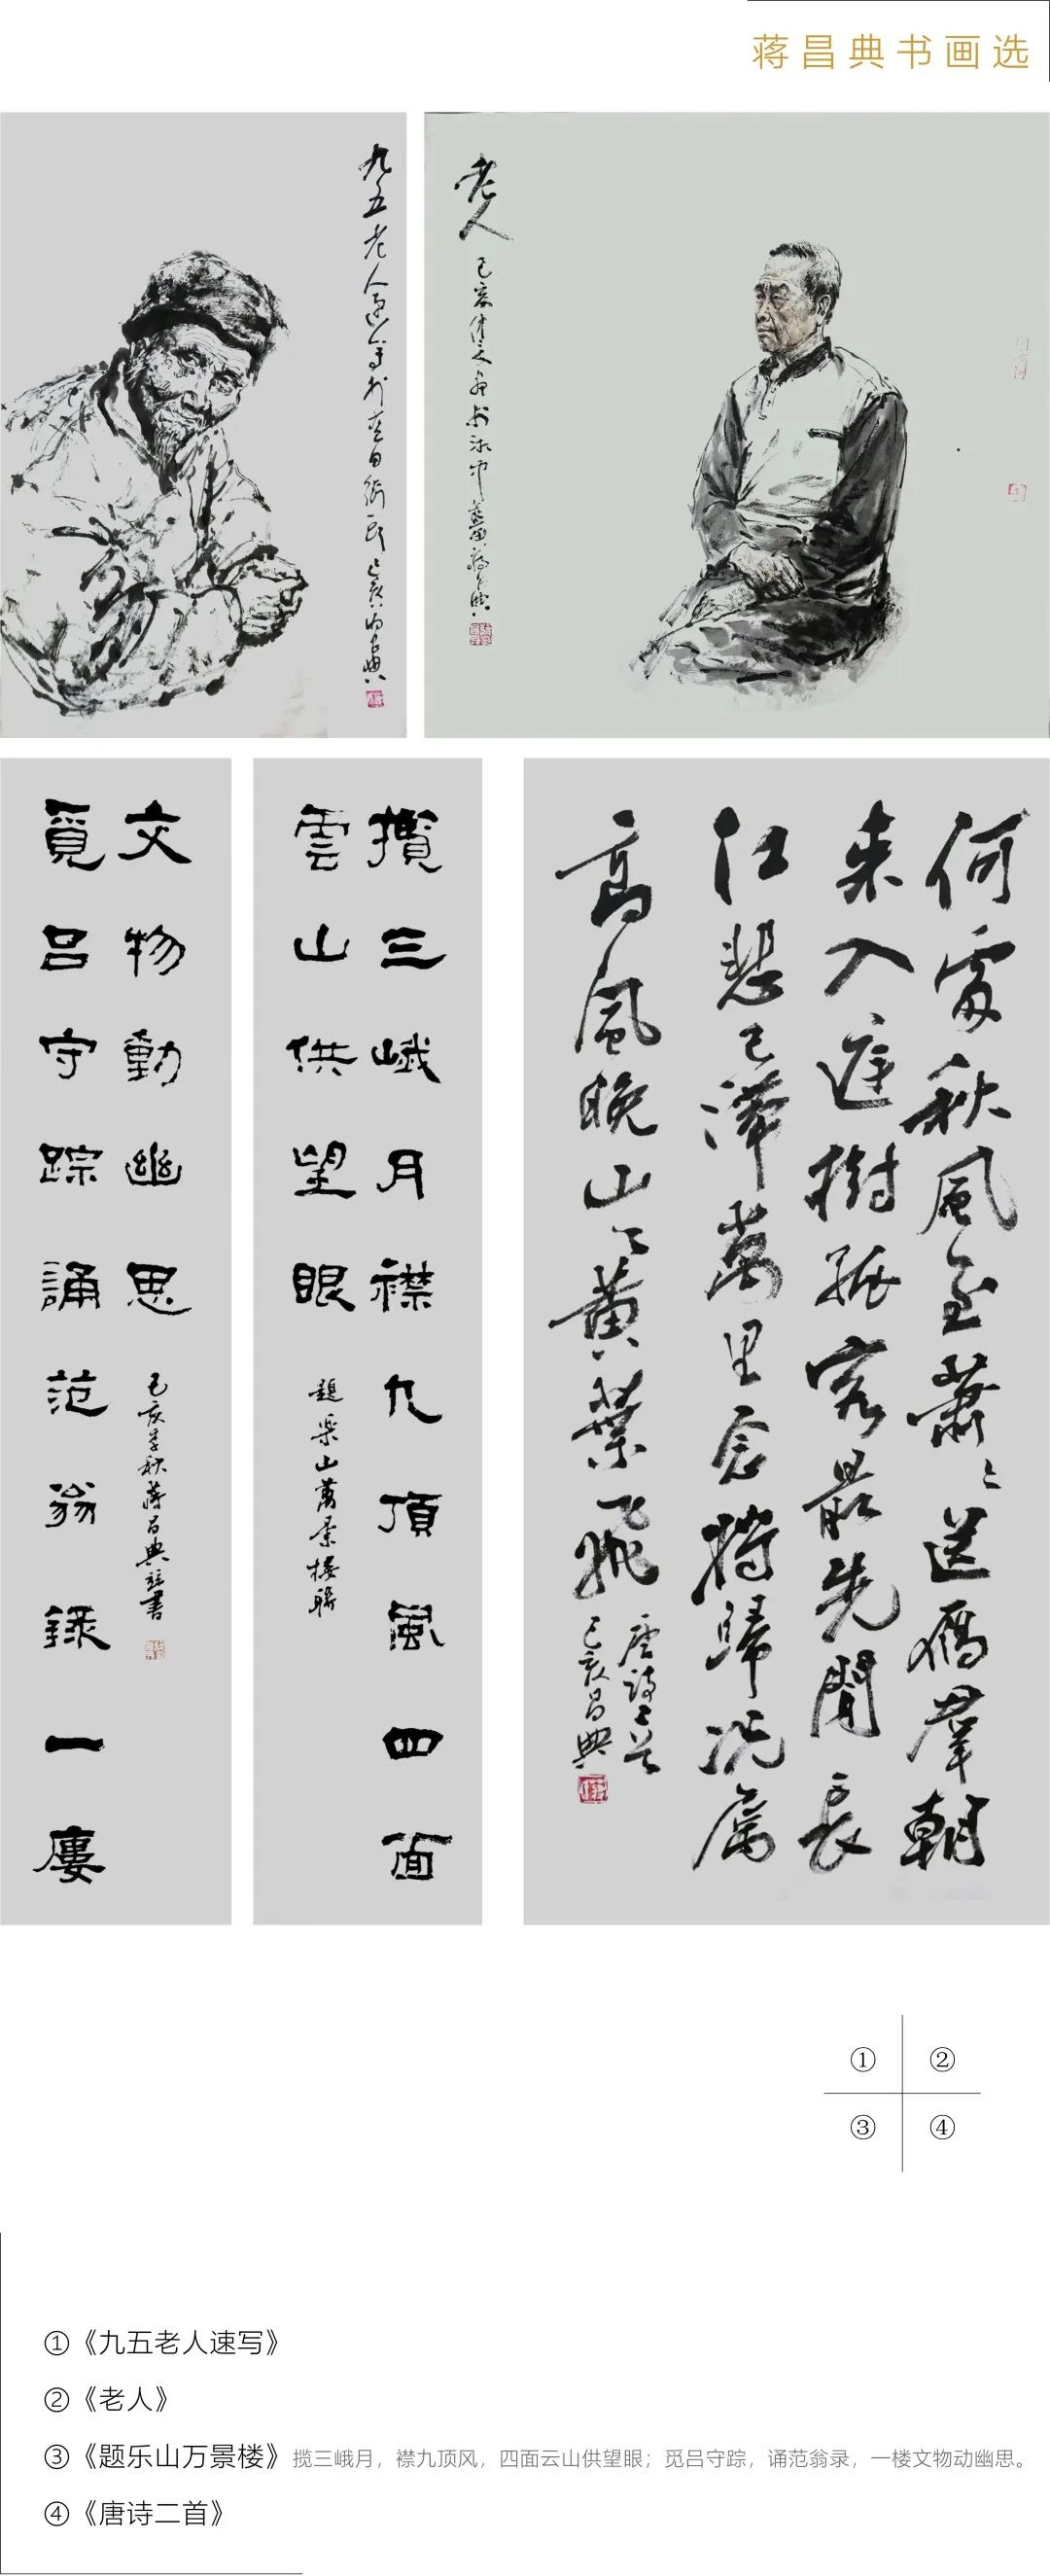 蒋昌典书画选
九五老人速写于北京自衡斋 己亥 蒋昌典
老人
文物動幽思
覓呂守踪誦范翁錄一廔
己亥季秋蒋昌典並書
攬三峨月襟九頂風四面
雲山供望眼
題樂山萬景樓聯
何處秋風至蕭〻送雁羣朝
来入庭樹孤客最先聞長
江悲已滯萬里念將歸况属
高風晚山〻黄葉飛
唐詩二首
己亥昌典
① ②
③ ④
①《九五老人速写》
②《老人》
③《题乐山万景楼》揽三峨月，襟九顶风，四面云山供望眼；觅吕守踪，诵范翁录，一楼文物动幽思。
④《唐诗二首》